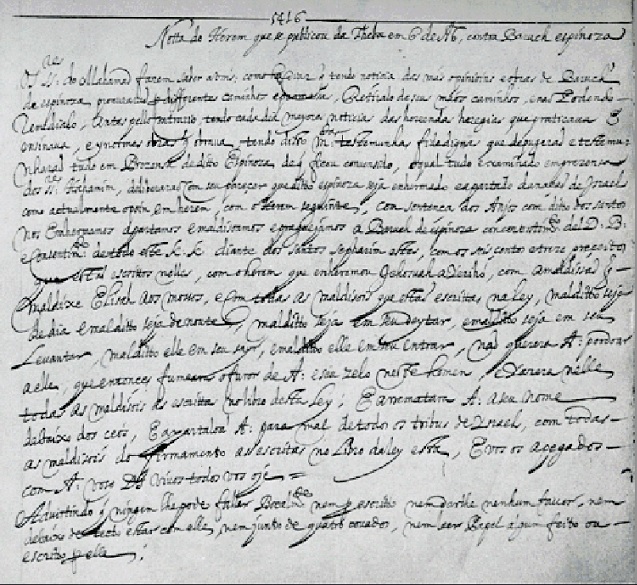 5416
Notta do Herem que se publicou da Theba em 6 de Ab, contra Baruch espinoza
Os SSres. do Mahamad fazem saber a Vms. como ha dias q tendo noticia das mas opinioins e obras de Baruch
de espinoza procurarão p differentes caminhos e promessas, Retiralo de seus máos caminhos, e não Podendo
Remedialo, antes pello contrario tendo cada dia mayores noticias das horrendas heregias que praticava &
ensinava, e ynormes obras q obrava, tendo disto mtas. testemunhas fidedignas que depugerão e testemu
nharão tudo em Prezensa de ditto Espinoza, de q ficou convensido, o qual tudo examinado em prezensa
dos SSres. Hahamim, deliberarão com seu parecer que ditto espinoza seja enhermado e apartado de nação de Israel
como actualmente o poin em herem, com o Herem seguinte; com sentença dos Anjos com ditto dos santos
nos Enhermamos apartamos e maldisoamos e praguejamos a Baruch de espinoza com consentimto. del D. B.
e consentimto. de todo este K. K. diante dos santos sepharim estes, com os seis centos e treze preceitos
que estão escrittos nelles, com o herem que enheremou Jehosuah a Yeriho, com a maldisão q
maldixe Elisah aos mossos, e com todas as maldisois que estão escrittas na ley, malditto seja
de dia e malditto seja de noute, malditto seja em seu deytar, e malditto seja em seu
Levantar, malditto elle em seu sayr, e malditto elle em seu entrar, não querera A: perdoar
a elle, que entonces fumeara o furor de A: e seu zelo neste homem E yazera nelle
todas as maldisois as escrittas no libro desta Ley; E arrematara A: a seu nome
debaixo dos ceos, E apartaloa A: para mal de todos os tribus de Ysrael, com todas
as maldisois do firmamento as escritas no Libro da ley esta, E vos os apegados
com A: voso Ds vivos todos vos oje =
Advirtindo q ningem lhe pode fallar Bocalmte. nem p escrito nem darlhe nenhum favor, nem
debaixo de tecto estar com elle, nem junto de quatro covados, nem leer Papel algum feito ou
escrito p elle;